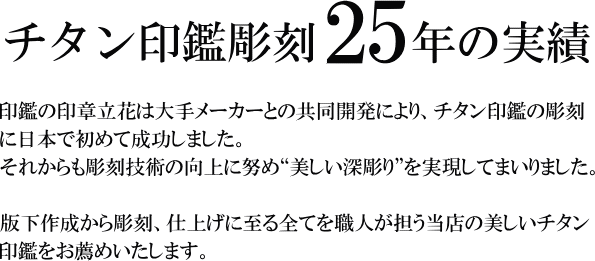 チタン印鑑彫刻25年の実績
印鑑の印章立花は大手メーカーとの共同開発により、チタン印鑑の彫刻
に日本で初めて成功しました。
それからも彫刻技術の向上に努め“美しい深彫り”を実現してまいりました。
版下作成から彫刻、仕上げに至る全てを職人が担う当店の美しいチタン
印鑑をお薦めいたします。